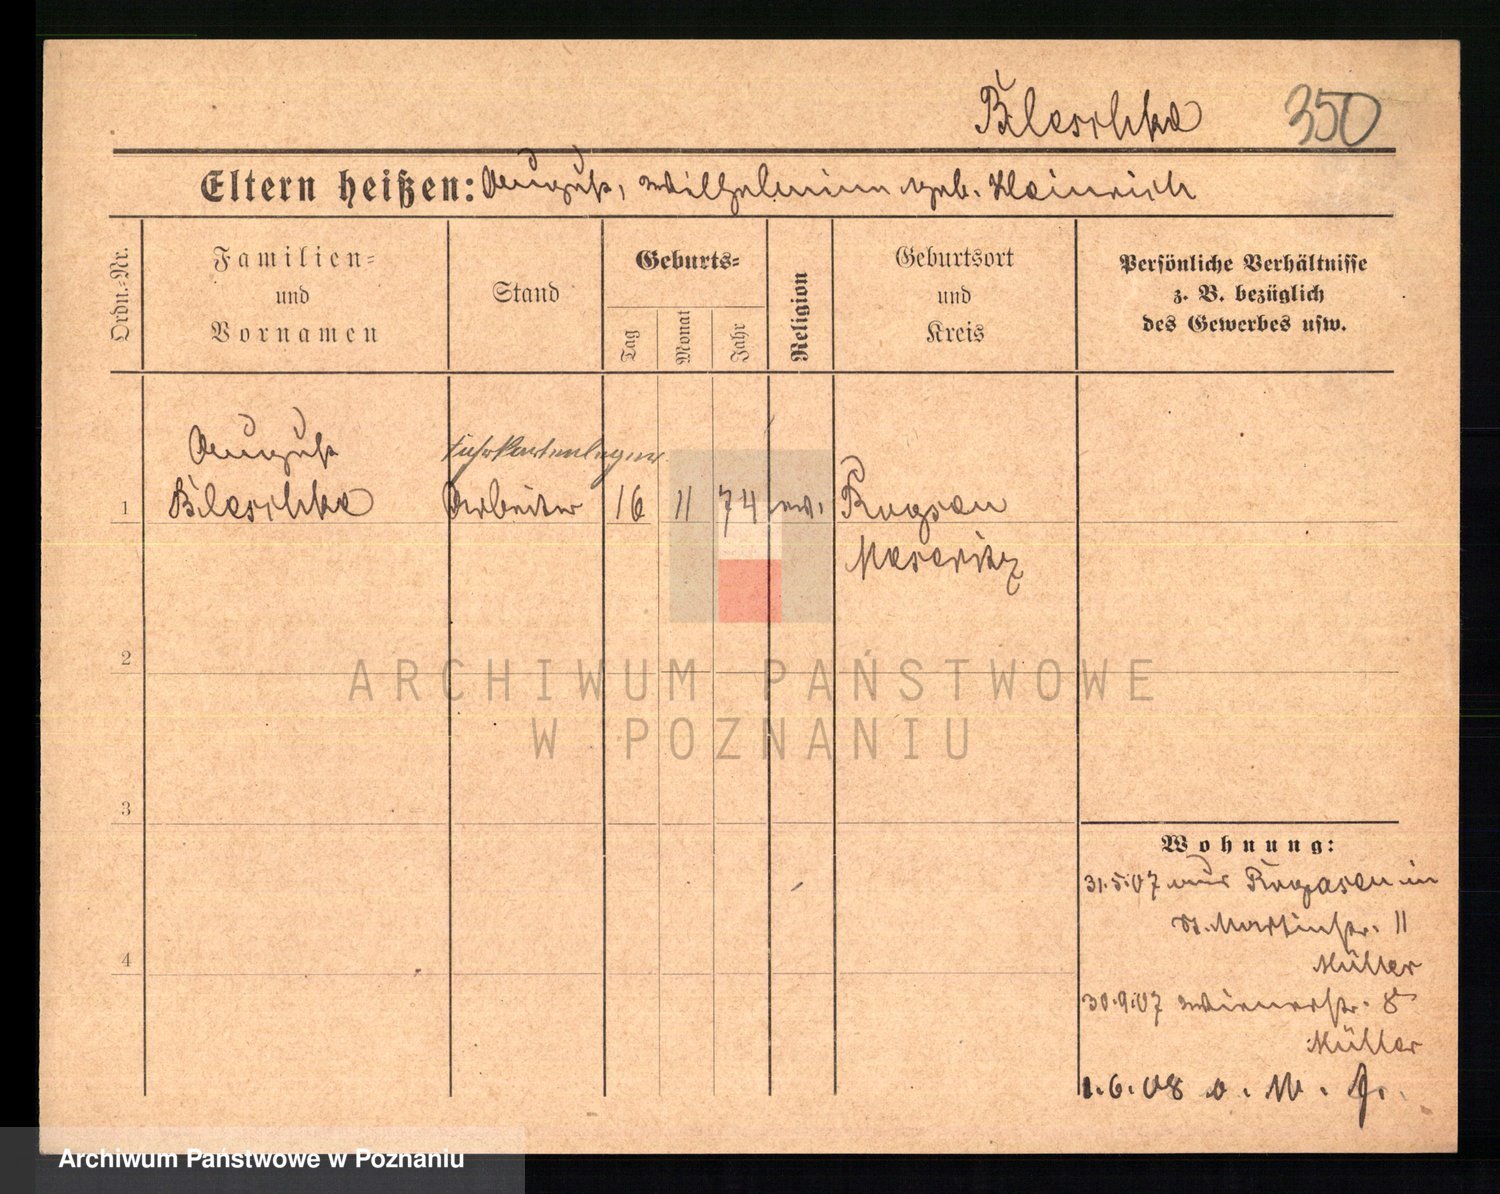 Blaschke 350
Eltern heißen: August, Wilhelmine geb. Heinrich
Ordn.-Nr.
Familien-
und
Vornamen
Stand
Geburts-
Tag
Monat
Jahr
Religion
Geburtsort
und
Kreis
Persönliche Verhältnisse
z. B. bezüglich
des Gewerbes usw.
August
1 Blaschke Arbeiter 16 11 74 ev.
Meseritz
2
3
4
Wohnung:
31.5.07 aus Rogasen in
St. Martinstr. 11
Müller
30.9.07 Wienerstr. 8
Müller
1.6.08
ARCHIWUM PAŃSTWOWE
W POZNANIU
Archiwum Państwowe w Poznaniu